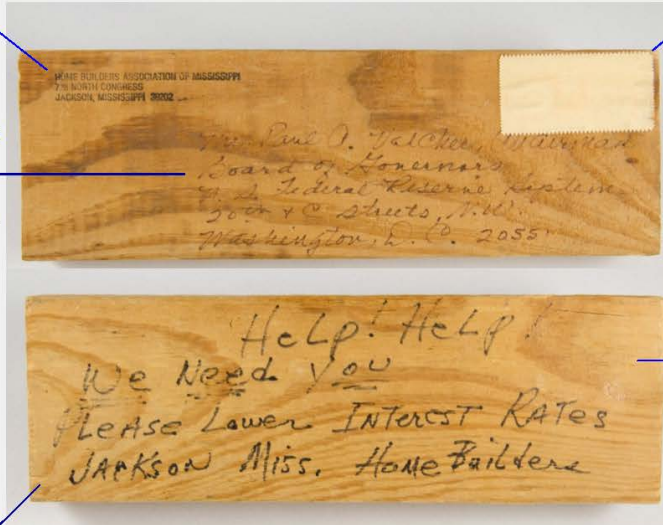 HOME BUILDERS ASSOCIATION OF MISSISSIPPI
NORTH CONGRESS
JACKSON, MISSISSIPPI 39202
Mr. Paul A. Volcker, Chairman
Board of Governors
U.S. Federal Reserve System
20th & C Streets, N.W.
Washington, D.C. 2055
Help! Help!
We Need you
Please Lower Interest Rates
Jackson Miss. Home Builders